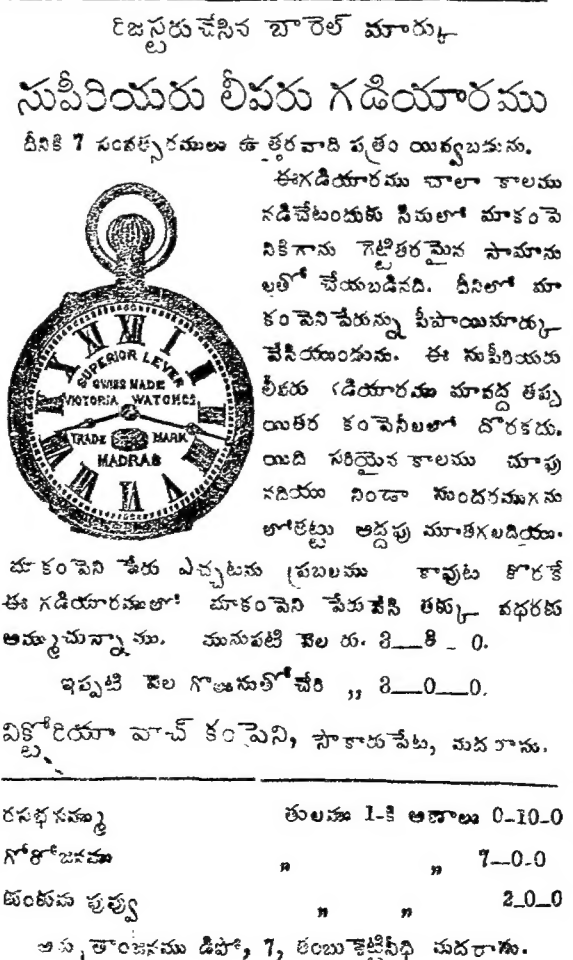 రిజిస్టరుచేసిన బారెల్ మార్కు
సుపీరియరు లీవరు గడియారము
దీనికి 7 సంవత్సరములు ఉత్తరవాది పత్రం యివ్వబడును.
ఈగడియారము చాలా కాలము
నడిచేటందుకు సీమలో మాకంపె
నికిగాను గెట్టితరమైన సామాను
లతో చేయబడినది. దీనిలో మా
కంపెనిపేరున్ను పీపాయిమార్కు
వేసియుండును. ఈ సుపీరియరు
లీవరు గడియారము మావద్ద తప్ప
యితర కంపెనీలలో దొరకదు.
యిది సరియైన కాలము చూపు
నదియు నిండా సుందరముగను
లోతట్టు అద్దపు మూతగలదియు.
SUPERIOR LEVER
SWISS MADE
VICTORIA WATCHES
TRADE MARK
MADRAS
మాకంపెని పేరు ఎచ్చటను ప్రబలము కావుట కొరకే
ఈ గడియారములో మాకంపెని పేరువేసి తక్కువధరకు
అమ్ముచున్నాము. మునుపటి వెల రు. 3—8-0.
ఇప్పటి వెల గొలుసుతోచేరి ,, 3—0—0.
విక్టోరియా వాచ్ కంపెని, సౌకారుపేట, మదరాసు.
రసభస్మము తులము 1-కి అణాలు 0-10-0
గోరోజనము " " 7—0-0
కుంకుమ పువ్వు " " 2-0-0
అమృతాంజనము డిపో, 7, తంబుశెట్టివీధి మదరాసు.